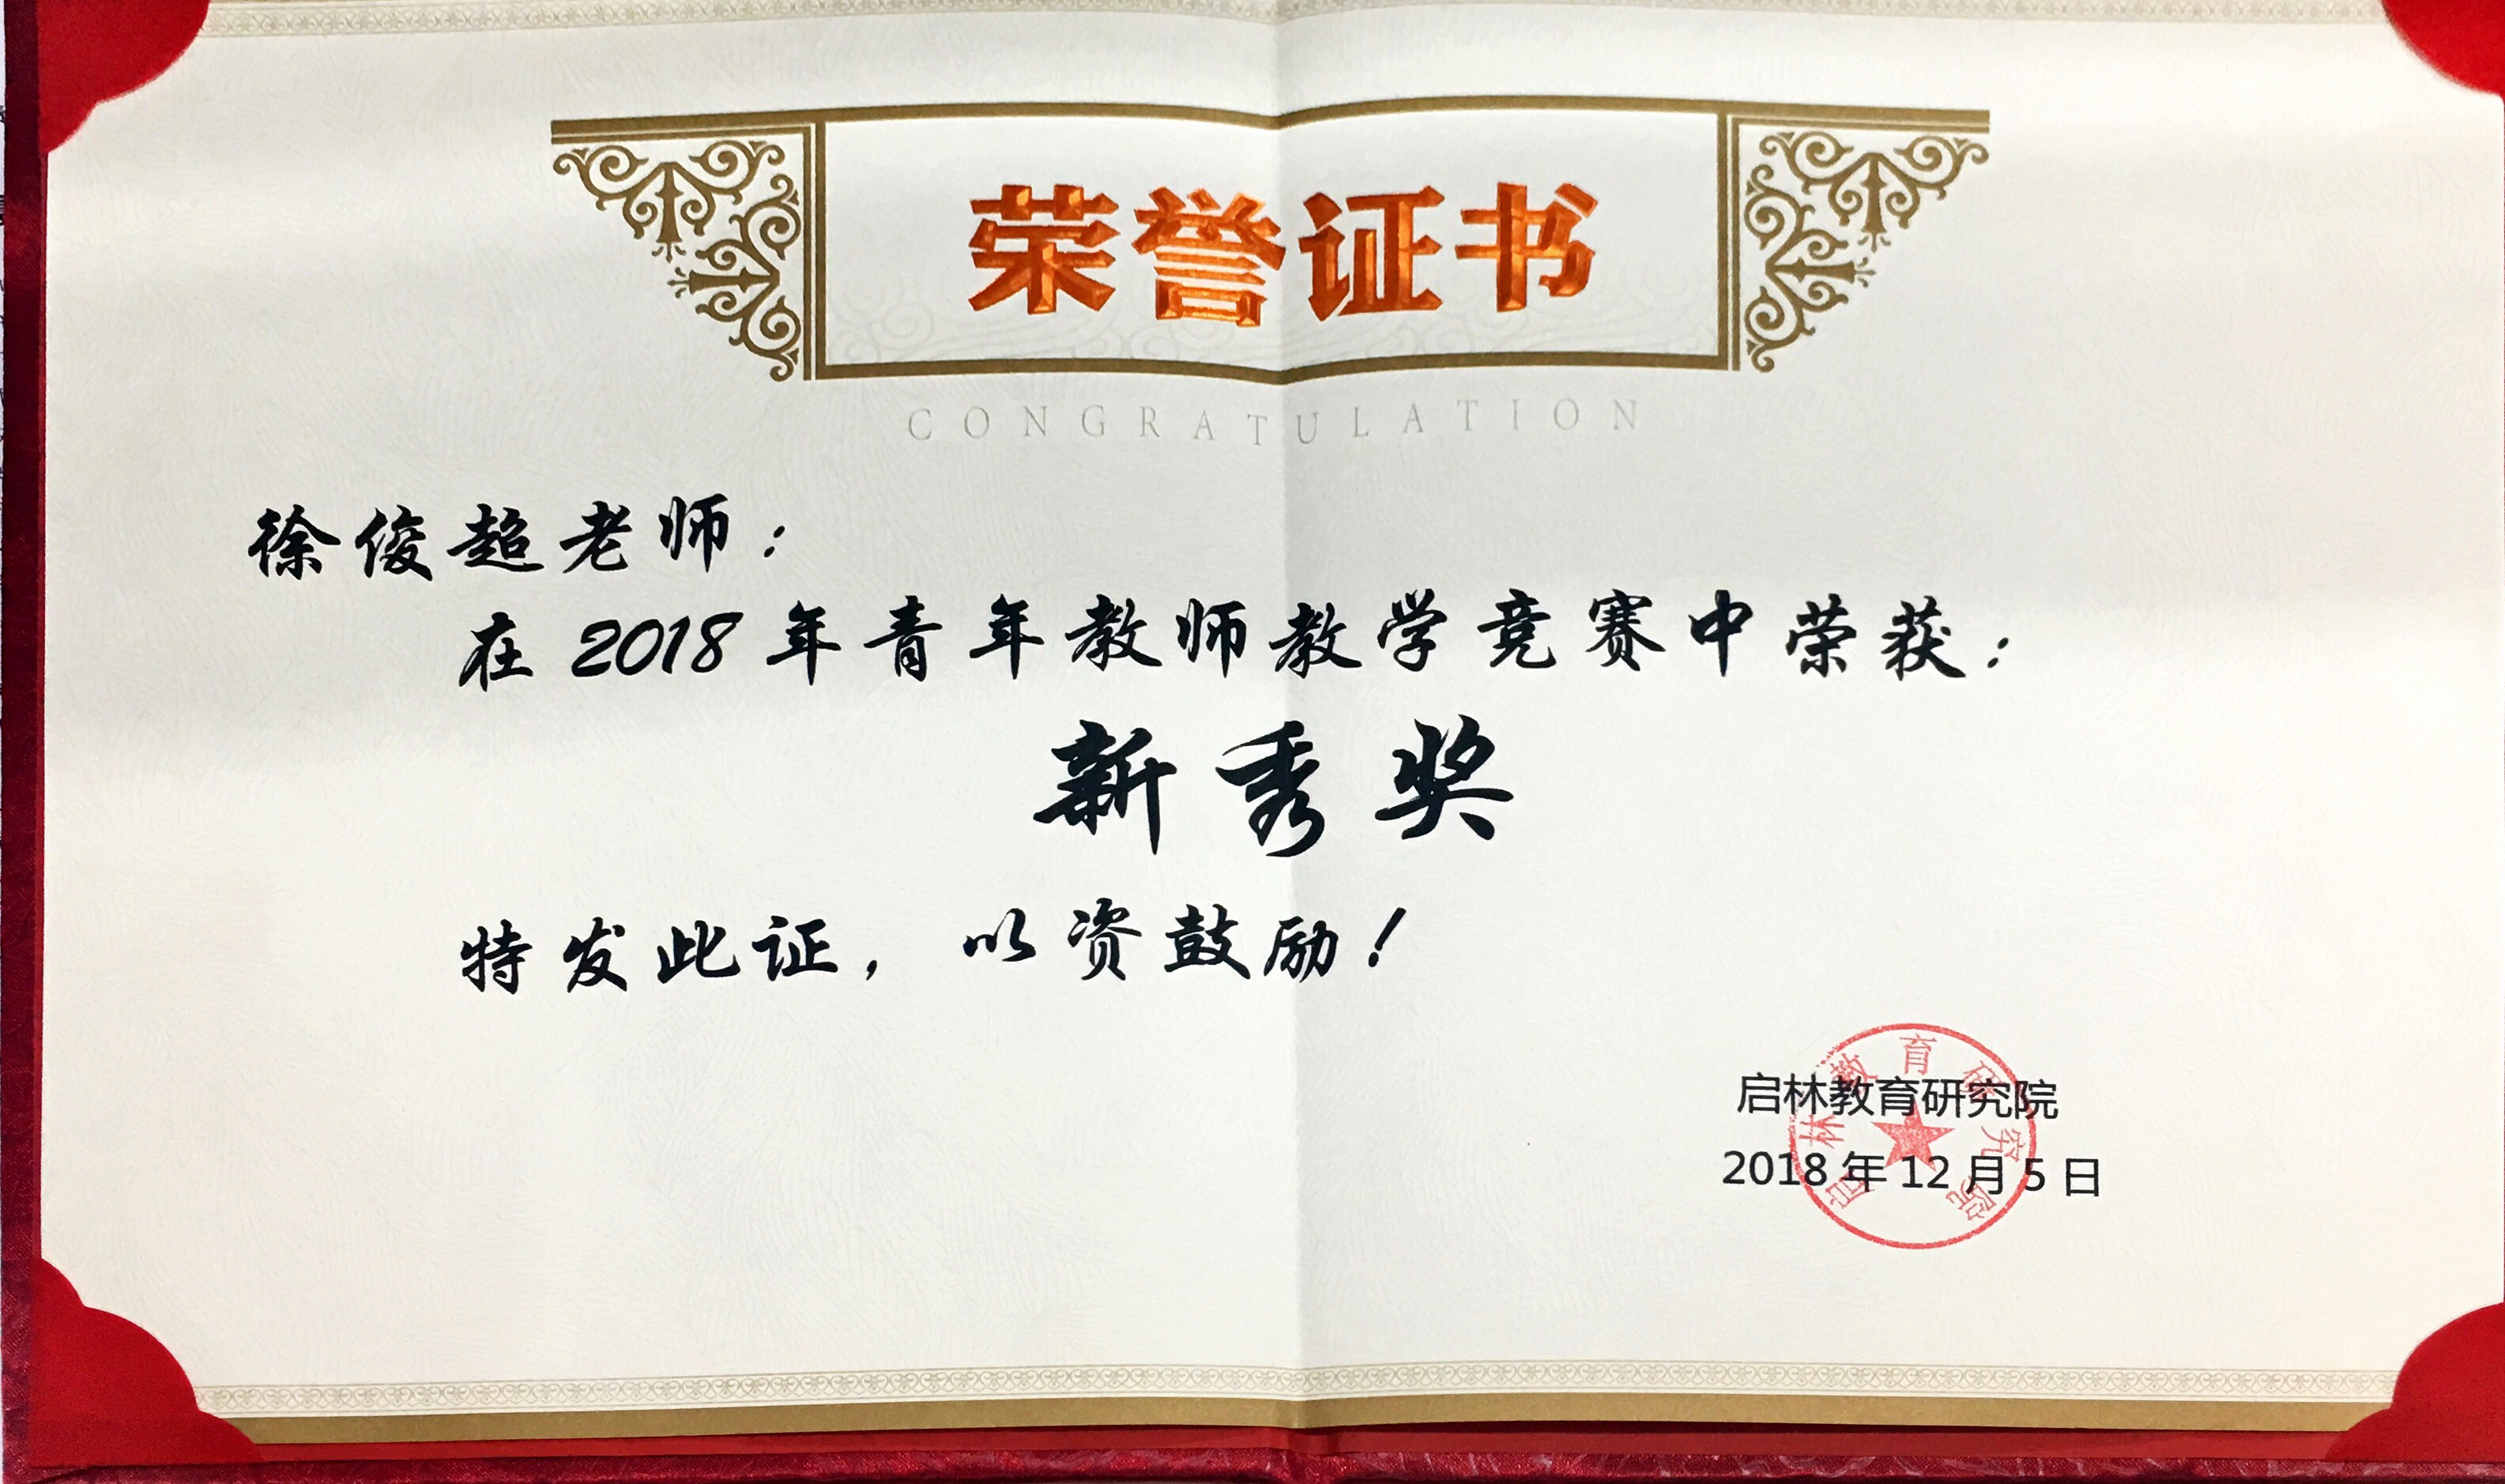 荣誉证书
CONGRATULATION
徐俊超老师：
在 2018 年青年教师教学竞赛中荣获：
新秀奖
特发此证，以资鼓励！
启林教育研究院
2018 年 12 月 5 日
启林教育研究院